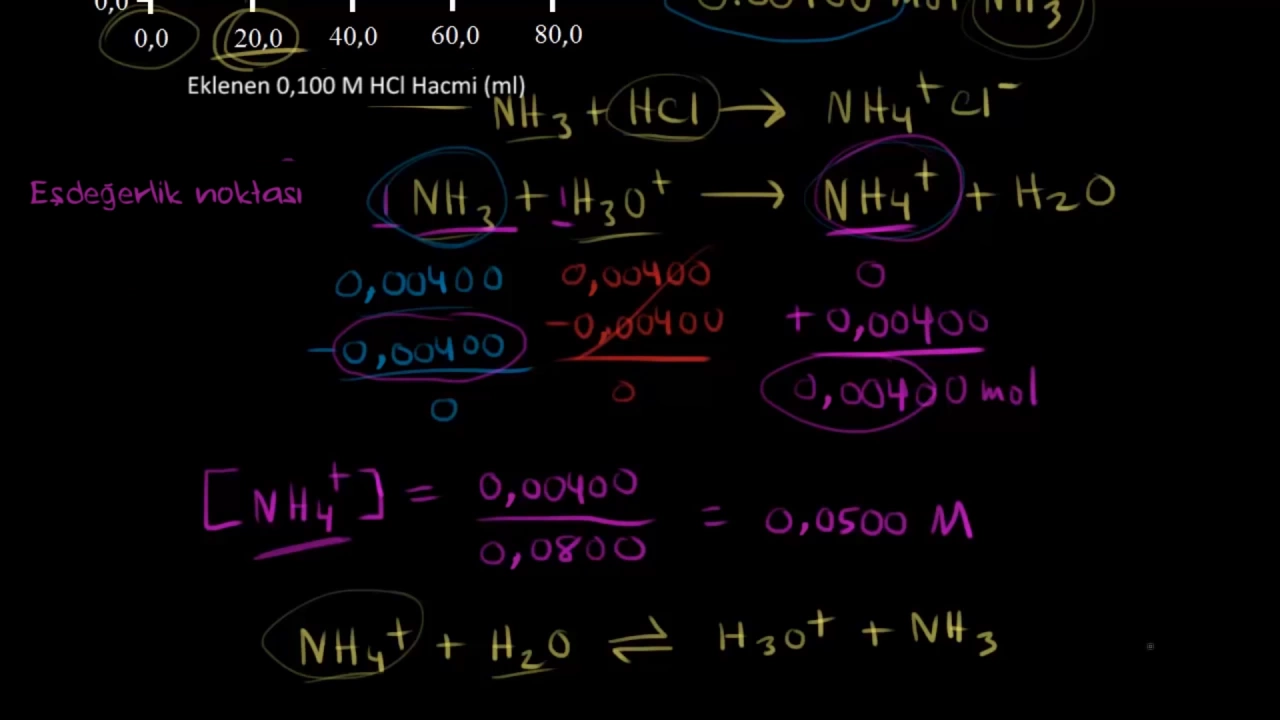 0,0
0.00400 mol NH₃
0,0 20,0 40,0 60,0 80,0
Eklenen 0,100 M HCl Hacmi (ml)
NH₃ + HCl → NH₄⁺ Cl⁻
Eşdeğerlik noktası
1 NH₃ + 1 H₃O⁺ → NH₄⁺ + H₂O
0,00400 0,00400 0
-0,00400 -0,00400 +0,00400
0 0 0,00400 mol
[NH₄⁺] = 0,00400 / 0,0800 = 0,0500 M
NH₄⁺ + H₂O ⇌ H₃O⁺ + NH₃